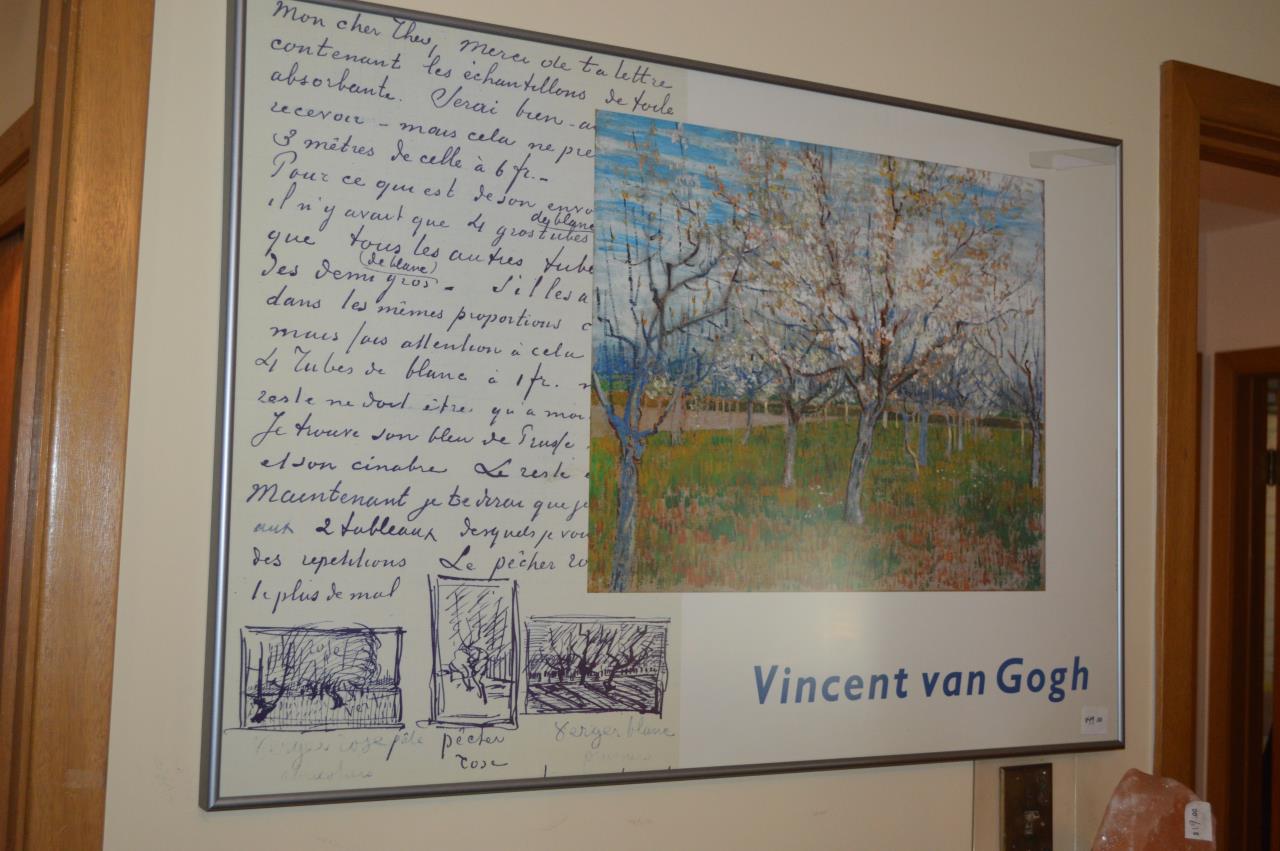 Mon cher Theo, Merci de ta lettre
contenant les échantillons de toile
absorbante. Serai bien-a
recevoir - mais cela ne pre
3 mètres de celle à 6 fr.-
Pour ce qui est de son envo
il n'y avait que 4 gros tubes
de blanc
que tous les autres tube
(de blanc)
des demi gros. - S'il les a
dans les mêmes proportions c
mais fais attention à cela
4 Tubes de blanc à 1 fr.
reste ne doit être qu'a moi
Je trouve son bleu de Prusse
et son cinabre Le reste
Maintenant je te dirai que je
aux 2 tableaux desquels je vou
des repetitions Le pêcher ro
le plus de mal
rose
vert
Verger rose pêle
pêcher
rose
Verger blanc
Vincent van Gogh
$19.00